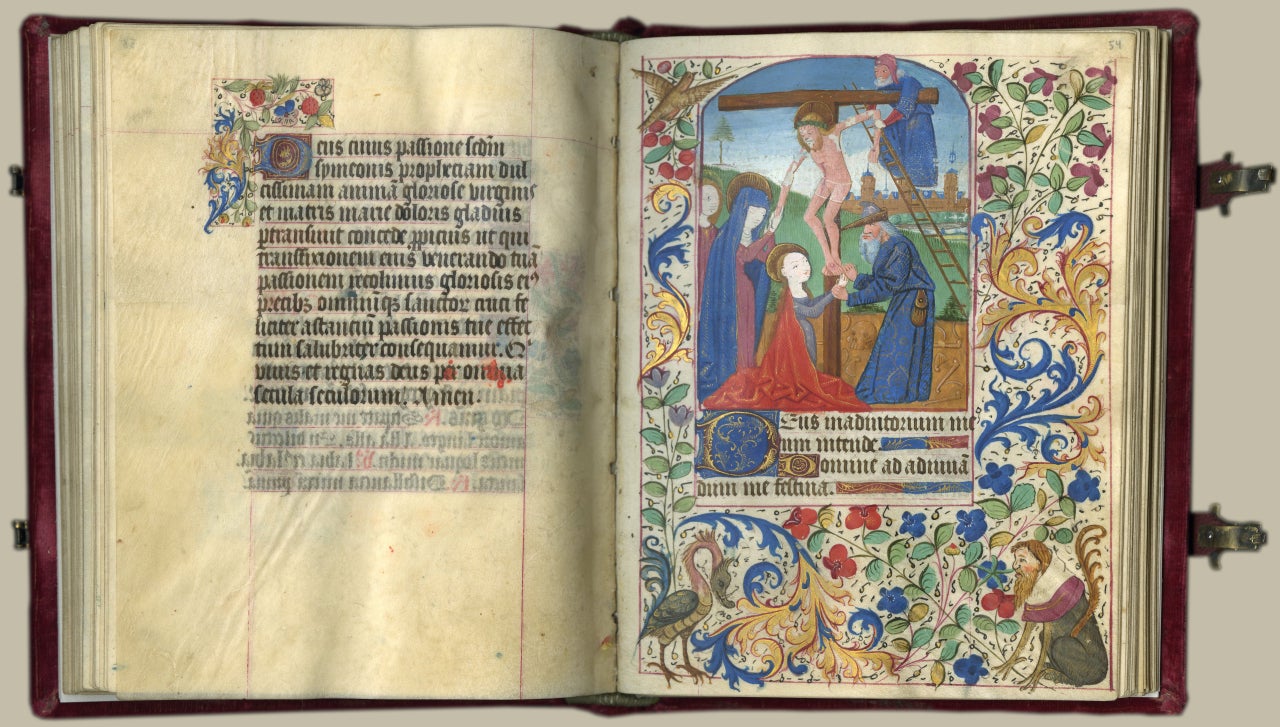 Deus cuius passione sedm
symeonis prophetiam dul
cissimam animā gloriose virginis
et matris marie doloris gladius
ptransiuit concede ppicius ut qui
transfixionem eius venerando tuā
passionem recolimus gloriosis eiꝰ
precibꝫ omniūqꝫ sanctoꝝ cruci fe
liciter astanciū passionis tue effec
tum salubriter consequamur. Q
viuis et regnas deus per omnia
secula seculorum. Amen.
54
Deus in adiutorium me
um intende
Domine ad adiuuā
dum me festina.